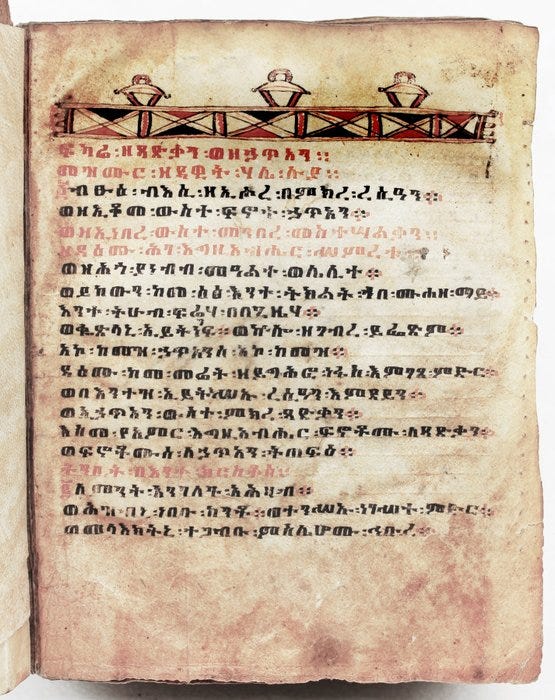 ፍካሬ ፡ ዘጻድቃን ፡ ወዘኃጥአን ።
መዝሙር ፡ ዘዳዊት ፡ ሃሌ ፡ ሉያ ፡
፩ብፁዕ ፡ ብእሲ ፡ ዘኢሖረ ፡ በምክረ ፡ ረሲዓን ።
ወዘኢቆመ ፡ ውስተ ፡ ፍኖት ፡ ኃጥአን ።
ወዘኢነበረ ፡ ውስተ ፡ መንበረ ፡ መስተሣልቃን ።
ዘዳዕሙ ፡ ሕገ ፡ እግዚአብሔር ፡ ሥምረቱ ።
ወዘሕጎ ፡ ያነብብ ፡ መዓልተ ፡ ወሌሊተ ።
ወይከውን ፡ ከመ ፡ ዕፅ ፡ እንተ ፡ ትክልት ፡ ኀበ ፡ ሙሐዘ ፡ ማይ ።
እንተ ፡ ትሁብ ፡ ፍሬሃ ፡ በበጊዜሃ ።
ወቈጽላኒ ፡ ኢይትነገፍ ። ወኵሎ ፡ ዘገብረ ፡ ይፌጽም ።
አኮ ፡ ከመዝ ፡ ኃጥአንሰ ፡ አኮ ፡ ከመዝ ።
ዳዕሙ ፡ ከመ ፡ መሬት ፡ ዘይግሕፎ ፡ ነፋስ ፡ እምገጸ ፡ ምድር ።
ወበእንተዝ ፡ ኢይትነሥኡ ፡ ረሲዓን ፡ እምደይን ።
ወኢኃጥአን ፡ ውስተ ፡ ምክረ ፡ ጻድቃን ።
እስመ ፡ የአምር ፡ እግዚአብሔር ፡ ፍኖቶሙ ፡ ለጻድቃን ።
ወፍኖቶሙ ፡ ለኃጥአን ፡ ትጠፍእ ።
ትንቢት ፡ በእንተ ፡ ክርስቶስ ።
፪ለምንት ፡ አንገለጉ ፡ አሕዛብ ።
ወሕዝብኒ ፡ ነበቡ ፡ ከንቶ ። ወተንሥኡ ፡ ነገሥተ ፡ ምድር ።
ወመላእክትኒ ፡ ተጋብኡ ፡ ምስሌሆሙ ፡ ኅቡረ ።